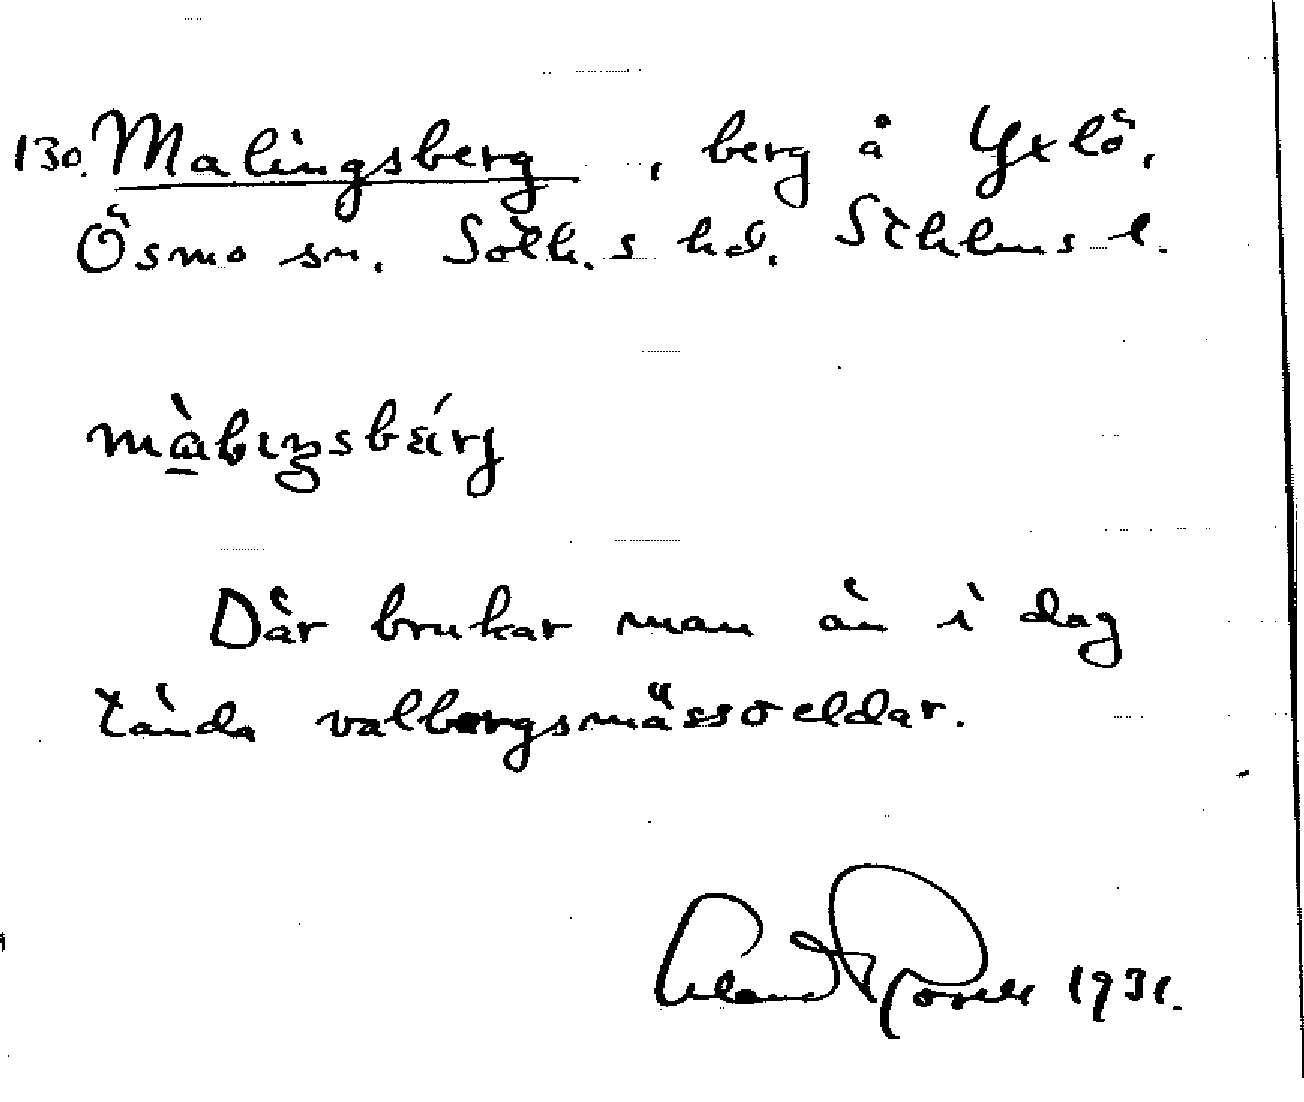 130. Malingsberg, berg å Yxlö,
Ösmo sn. Soth.s hd. Sthlms l.
Där brukar man än i dag
tända valborgsmässoeldar.
1931.